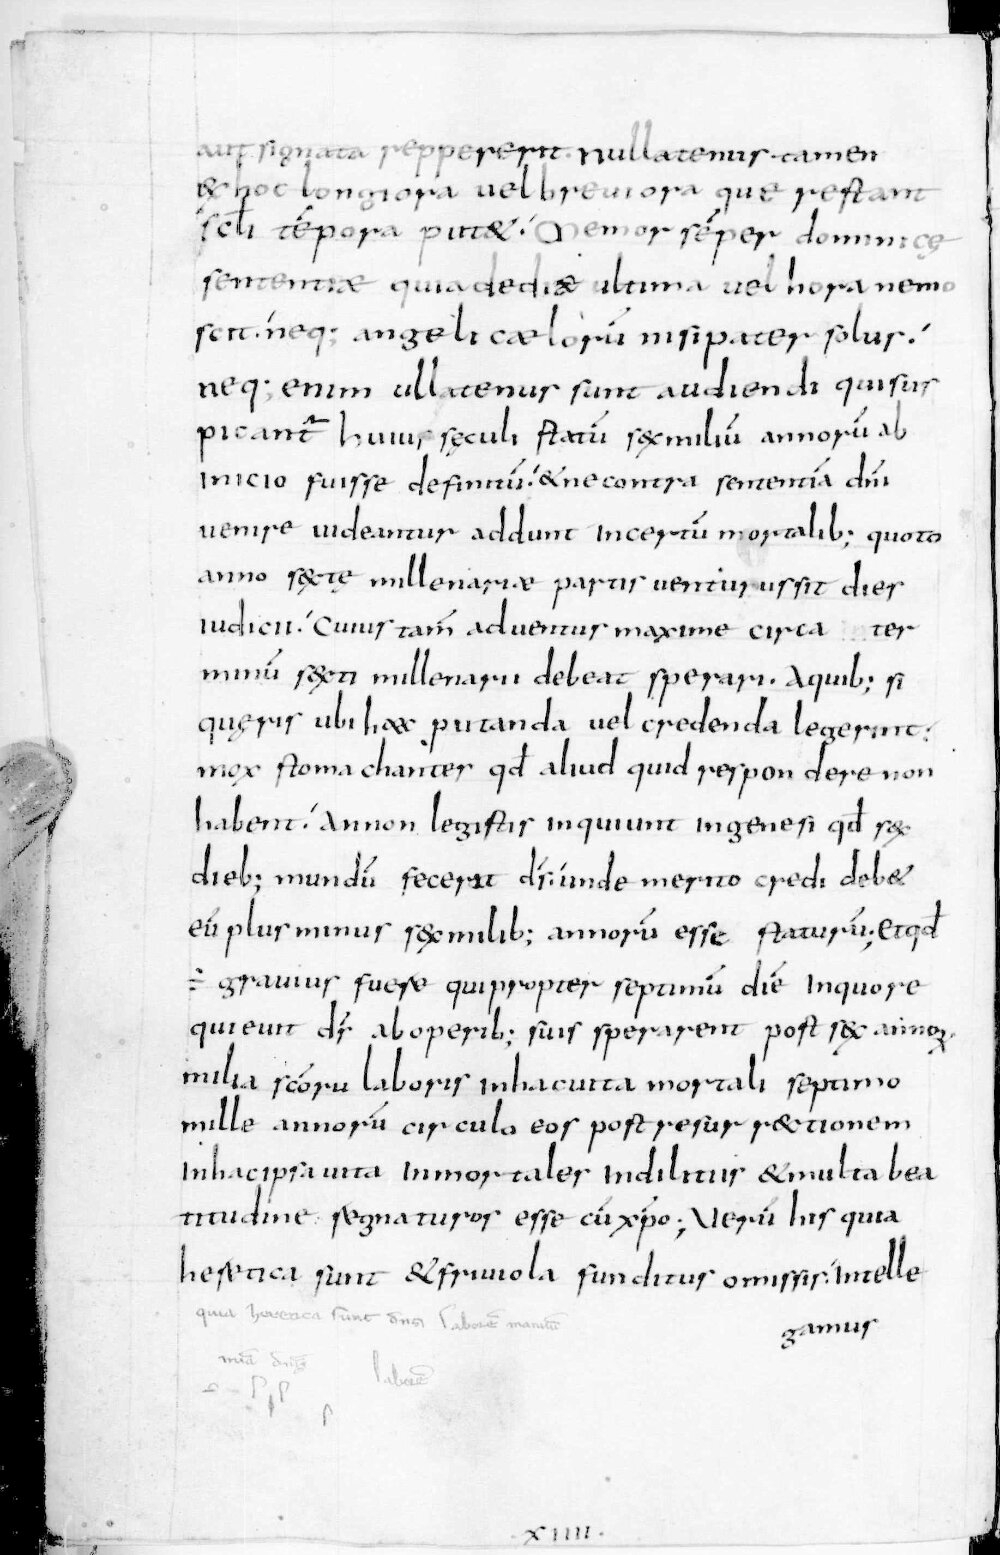 aut signata reppererit. Nullatenus tamen
& hoc longiora vel breviora que restant
scłi tēpora put&. Memor sēper dominicę
sententiæ quia de die ultima vel hora nemo
scit. neq; angeli cælorū nisi pater solus.
neq; enim ullatenus sunt audiendi qui sus
picant̄ huius sęculi statū s&miliū annorū ab
inicio fuisse definitū. & ne contra sententiā dn̄i
venire videantur addunt incertū mortalib; quoto
anno s&tę millenariæ partis venturus sit dies
iudicii. Cuius tam̄ adventus maxime circa ter
minū s&ti millenarii debeat sperari. Aquib; si
queris ubi hæc putanda vel credenda legerint.
mox stomachanter qđ aliud quid respondere non
habent. Annon legistis inquiunt in genesi qđ sex
dieb; mundū fecerit dr̄. unde merito credi deb&
eū plus minus sex milib; annorū esse staturū; Et qđ
÷ gravius fuere qui propter septimū diē in quo re
quievit dr̄ ab operib; suis sperarent post sex annoꝝ
milia scōru laboris in hac vita mortali septimo
mille annorū circulo eos post resurr&tionem
in hac ipsa vita inmortales in dilitiis & multa bea
titudine regnaturos esse cū xp̄o; Verū his quia
heretica sunt & frivola funditus omissis. intelle
gamus
quia heretica sunt
laborē
XIIII